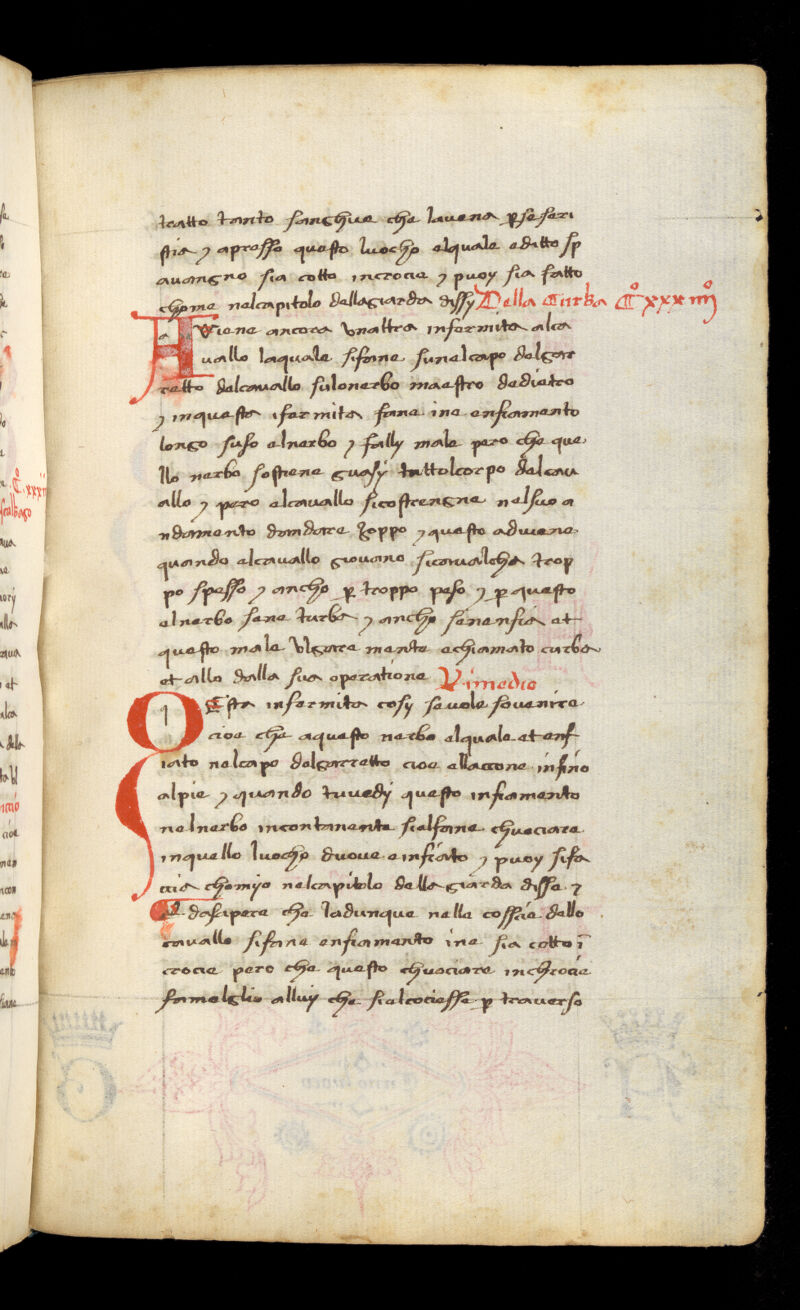 tratto tanto sanghue che lavena p se feri
stia ⁊ apresso questo luocho elquale editto sp
auangno sia cotto incrocie ⁊ puoy sia fatto
chome nelcapitolo dellagiarda dissy Della Curba Cº xxxiiijº
Aviene ancora vnaltra infermita alca
uallo laquale sifane sunelcapo delgar
retto delcauallo sulonerbo maestro dedietro
⁊ inquesta ifermita fane ine enfiamento
longo suso elnerbo ⁊ fally male pero che que
llo nerbo sostiene guasy tuttolcorpo delcau
allo ⁊ pero elcauallo sicostrengne nelsuo a
ndamento dandare zoppo ⁊ questo adviene
quando elcauallo giouano sicaualcha trop
po spesso ⁊ ancho p troppo peso ⁊ p questo
elnerbo sene turba ⁊ ancho sènenfia et
questo male vlgare mente echiamato curba
et allo dalla sua operatione Rimedio
Qesta infermita cosy seuole souenire
cioe che aquesto nerbo elquale et enf
iato nelcapo delgarretto cioe ellaccone infino
alpie ⁊ quando tuuedy questo infiamento
nelnerbo incontanente sielfane chuociare
inquello luocho duoue einfiato ⁊ puoy sifa
ccia chomijo nelcapitolo della giarda disse ⁊
Et dasapere che ladunque nelle cossie dello
cauallo sifane enfiamento ine sia cotto ī
crocie pero che questo chuociare inchrocie
famelglio alluy che sielcociesse p trauerso